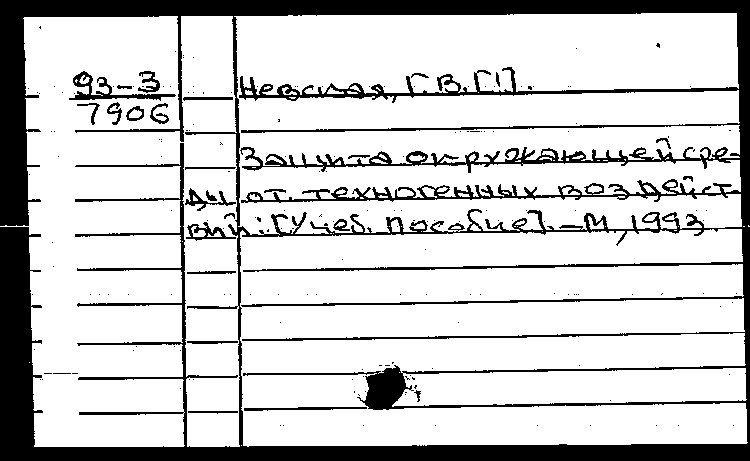 93-3
7906
Невская, Г.В.[!].
Защита окружающей сре-
ды от техногенных воздейст-
вий: [Учеб. пособие]. - М, 1993.